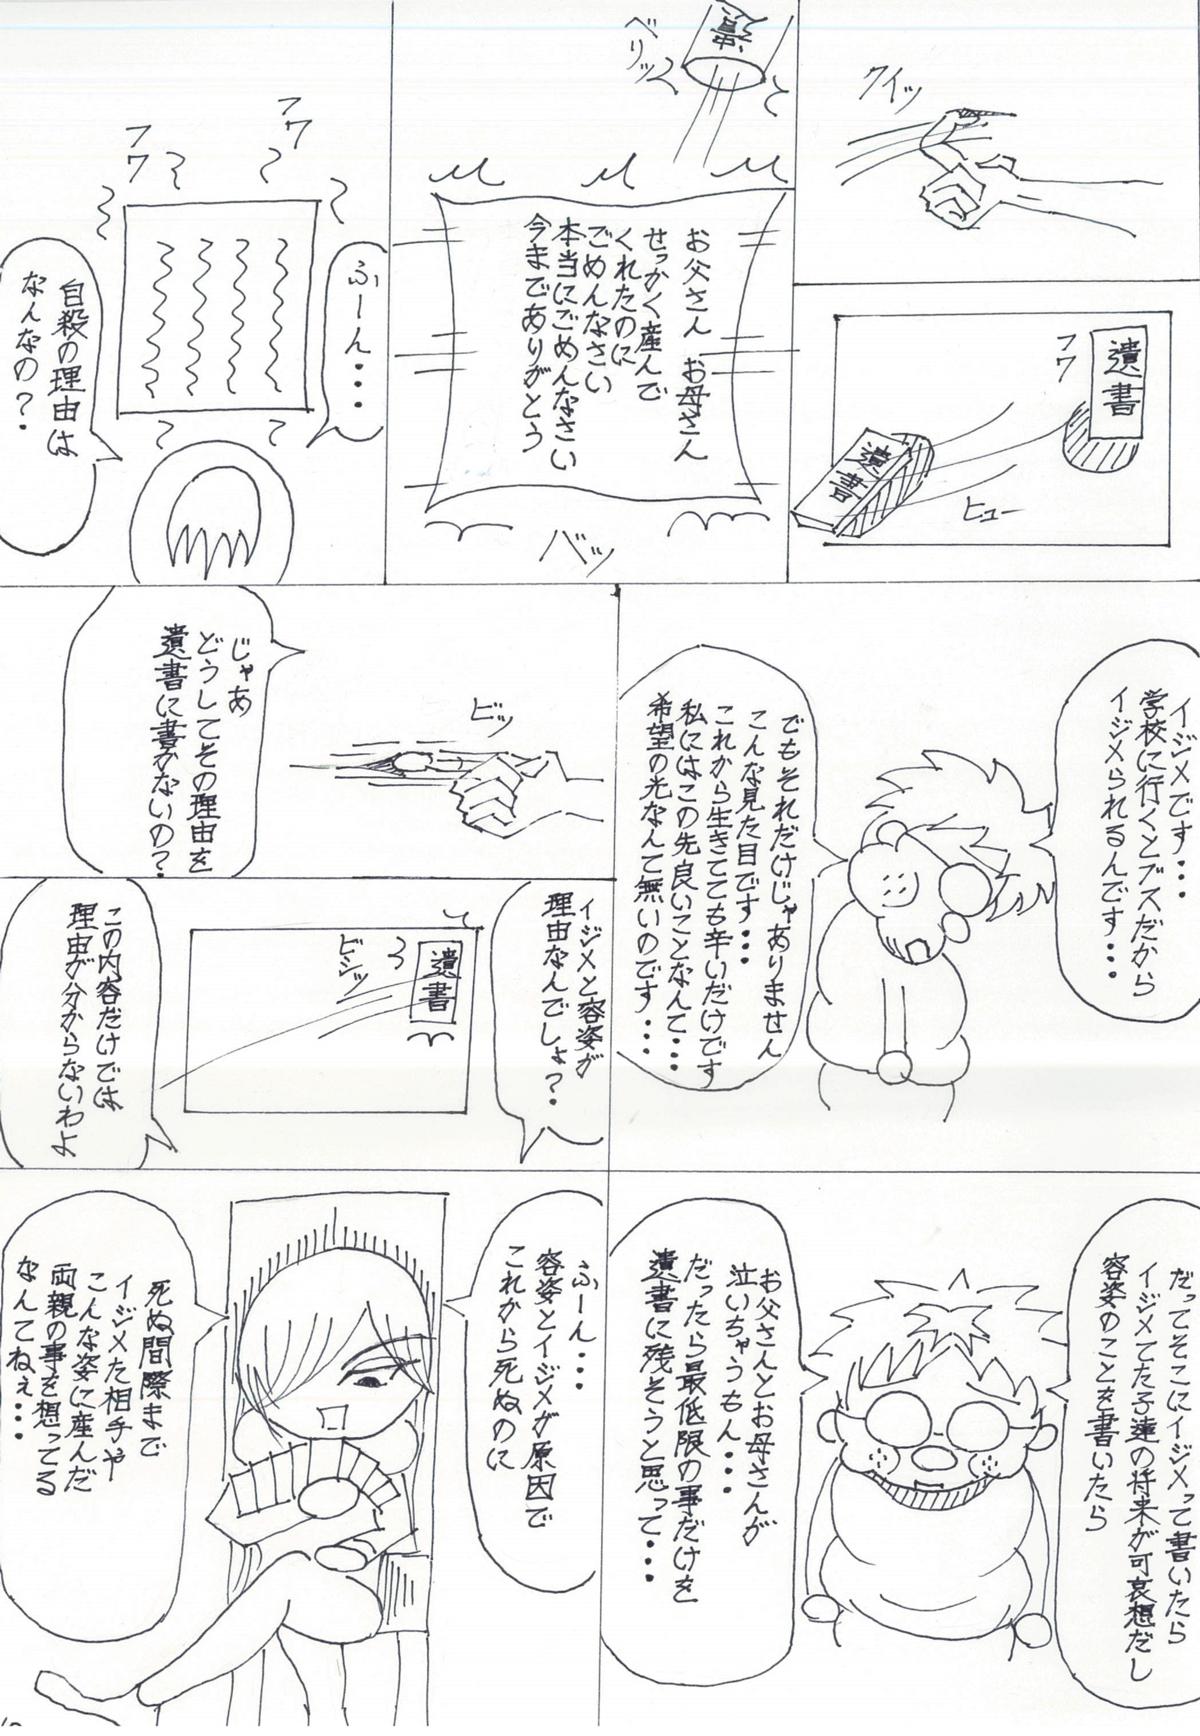 クイッ
遺書
フワ
遺書
ヒュー
遺書
ベリッ
お父さん お母さん
せっかく産んで
くれたのに
ごめんなさい
本当にごめんなさい
今までありがとう
バッ
ふーん・・・
フワ
フワ
自殺の理由は
なんなの?
イジメです・・・
学校に行くとブスだから
イジメられるんです・・・
でもそれだけじゃありません
こんな見た目です・・・
これから生きてても辛いだけです
私にはこの先良いことなんて・・・
希望の光なんて無いのです・・・
ビッ
じゃあ
どうしてその理由を
遺書に書かないの?
イジメと容姿が
理由なんでしょ?
遺書
ビシッ
この内容だけでは
理由が分からないわよ
だってそこにイジメって書いたら
イジメてた子達の将来が可哀想だし
容姿のことを書いたら
お父さんとお母さんが
泣いちゃうもん・・・
だったら最低限の事だけを
遺書に残そうと思って・・・
ふーん・・・
容姿とイジメが原因で
これから死ぬのに
死ぬ間際まで
イジメた相手や
こんな姿に産んだ
両親の事を想ってる
なんてねぇ・・・